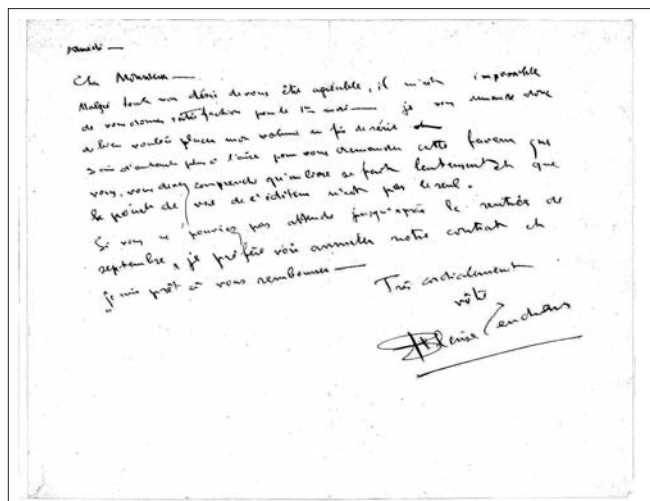 samedi —
Cher Monsieur —
Malgré tout mon désir de vous être agréable, il m'est impossible
de vous donner satisfaction pour le 1er — je vous demande donc
de bien vouloir placer mon volume en fin de série et
je suis d'autant plus à l'aise pour vous demander cette faveur que
vous, vous devez comprendre qu'un livre se fait lentement et que
le point de vue de l'éditeur n'est pas le seul.
Si vous ne pouviez pas attendre jusqu'après la rentrée de
septembre, je préfère voir annuler notre contrat et
je suis prêt à vous rembourser —
Très cordialement
vôtre
Blaise Cendrars